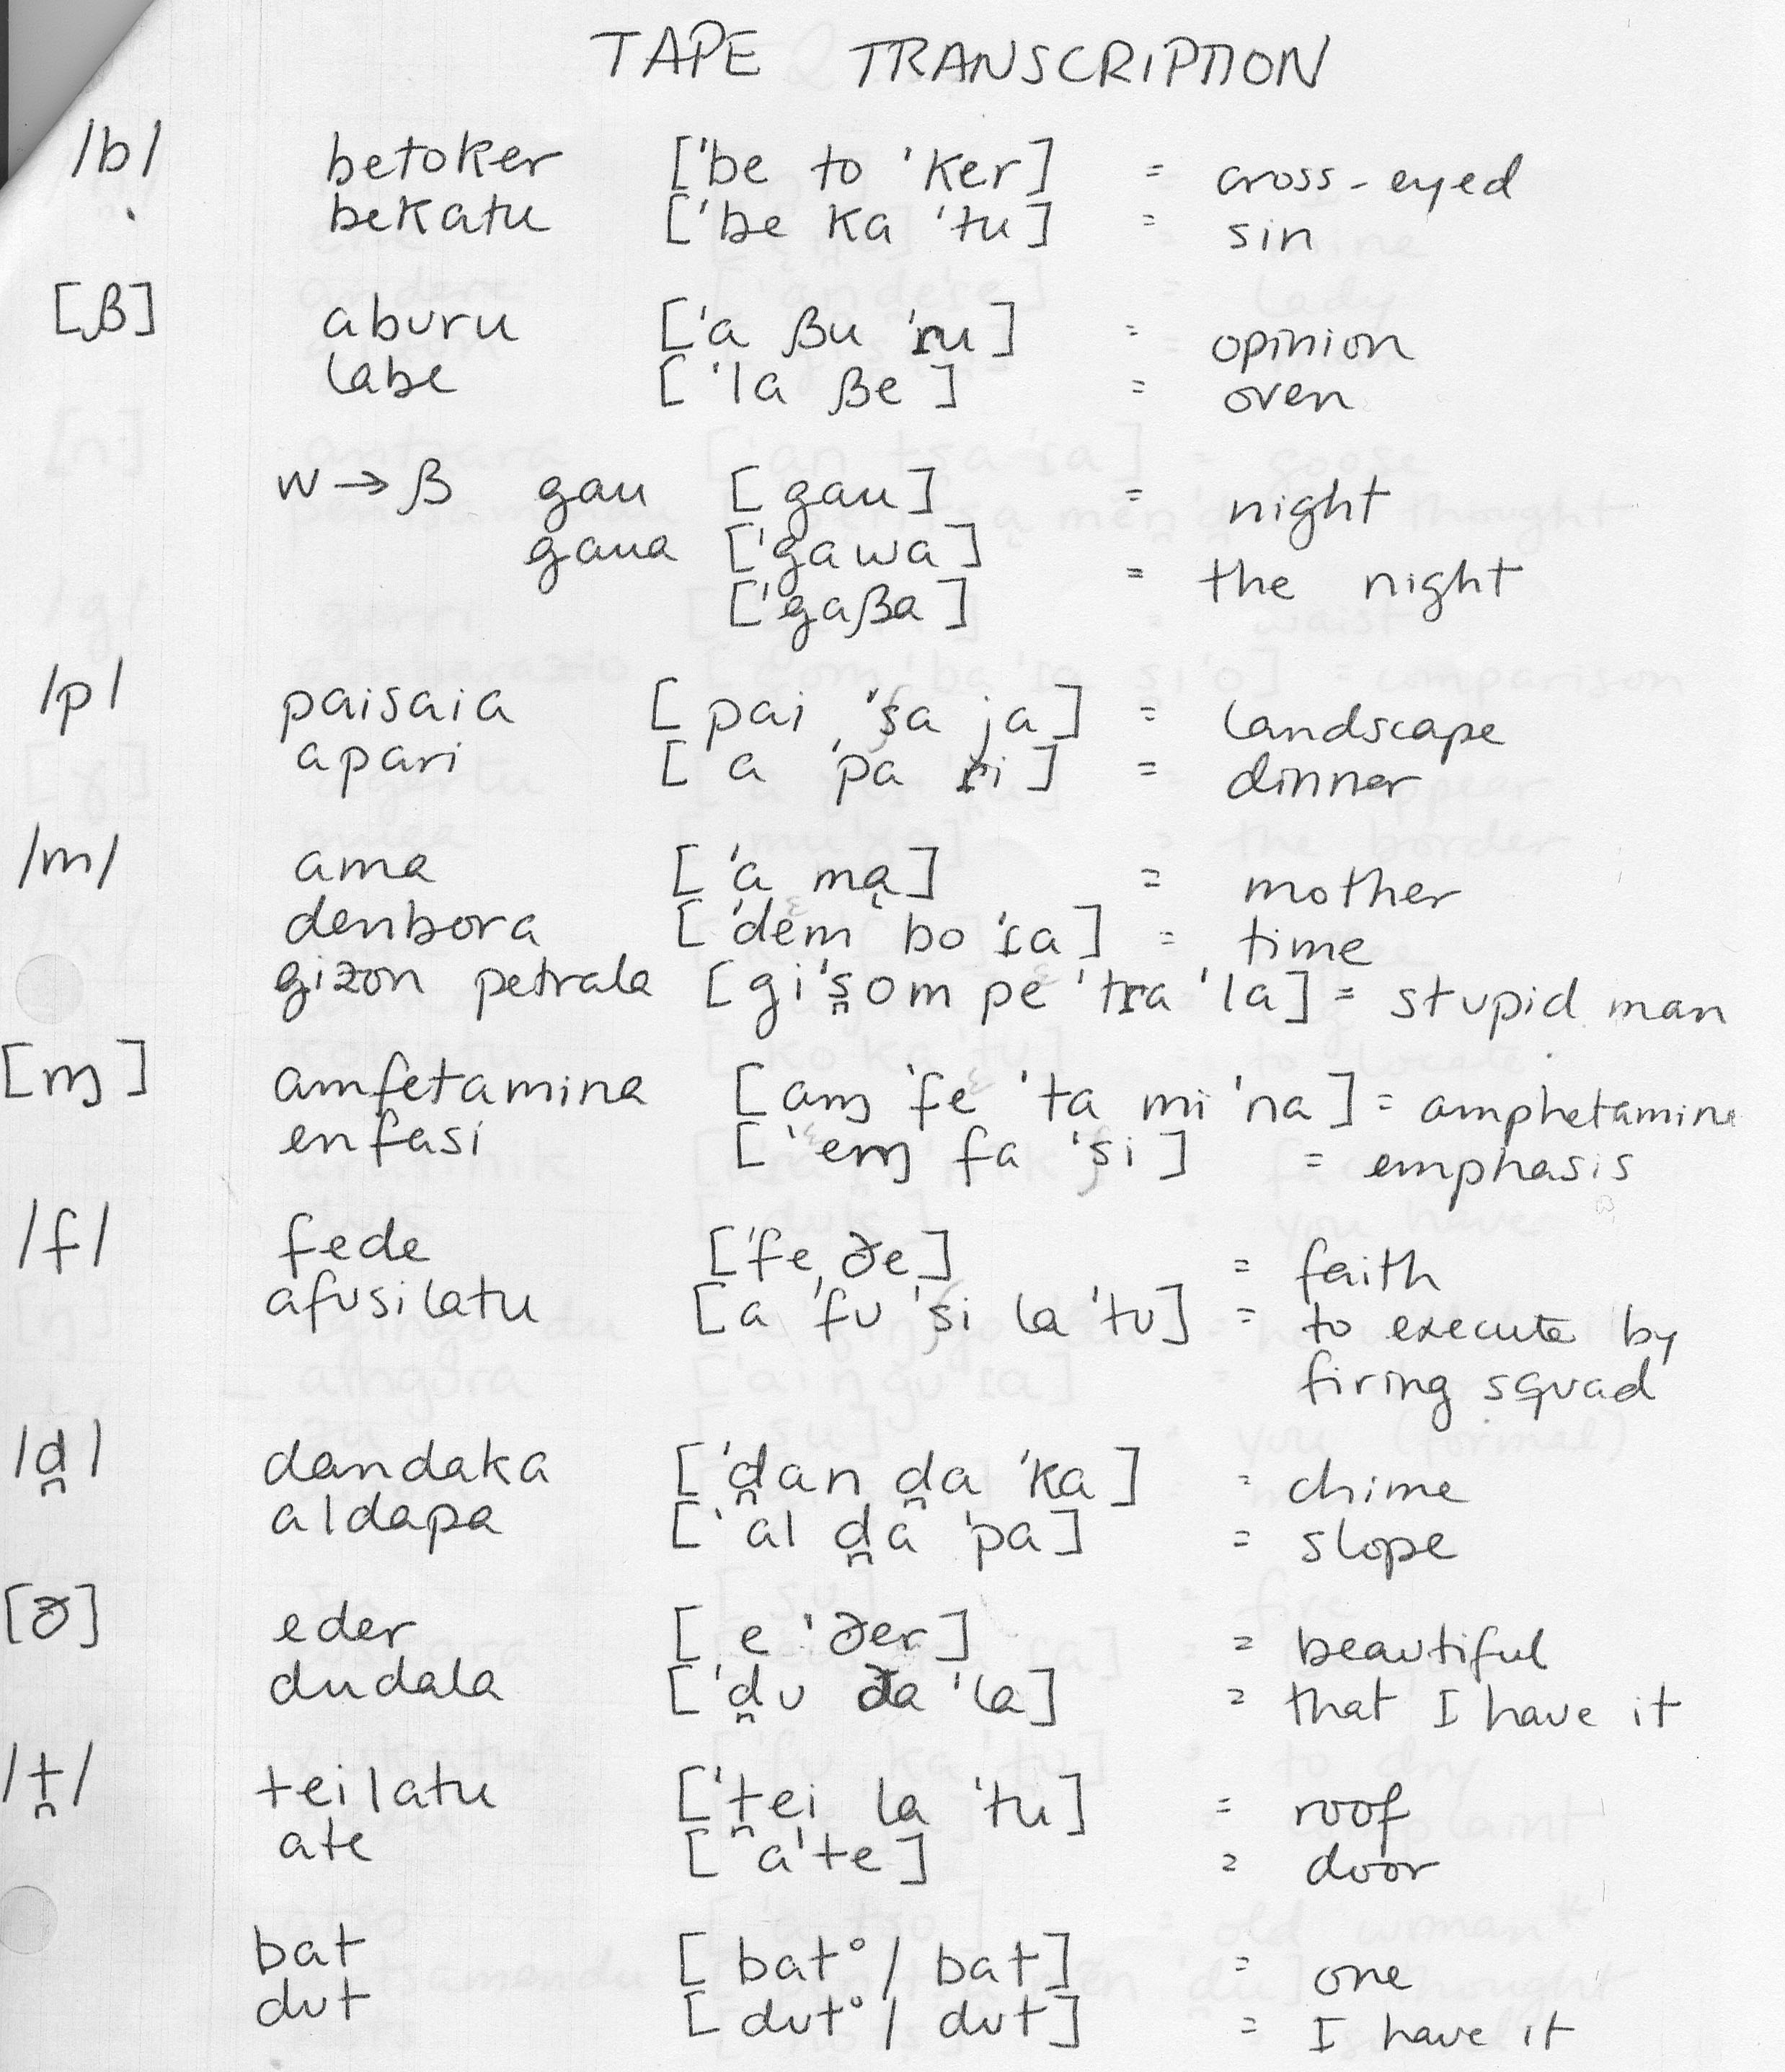 TAPE TRANSCRIPTION
/b/ betoker ['be to 'ker] = cross-eyed
bekatu ['be ka 'tu] = sin
[β] aburu ['a βu 'ɾu] = opinion
labe ['la βe] = oven
w → β gau [gau] = night
gaua ['gawa] = the night
['gaβa]
/p/ paisaia [pai 'ʂa ja] = landscape
apari [a 'pa ɾi] = dinner
/m/ ama ['a ma̧] = mother
denbora ['dem bo 'ɾa] = time
gizon petrala [gi's̪om pe 'tɾa 'la] = stupid man
[ɱ] amfetamina [aɱ 'fe 'ta mi 'na] = amphetamine
enfasi ['eɱ fa 'ʂi] = emphasis
/f/ fede ['fe ðe] = faith
afusilatu [a 'fu 'ʂi la 'tu] = to execute by
firing squad
/d̪/ dandaka ['d̪an d̪a 'ka] = chime
aldapa ['al d̪a 'pa] = slope
[ð] eder [e 'ðer] = beautiful
dudala ['d̪u ða 'la] = that I have it
/t̪/ teilatu ['t̪ei la 'tu] = roof
ate [a'te] = door
bat [bat° / bat] = one
dut [dut° / dut] = I have it